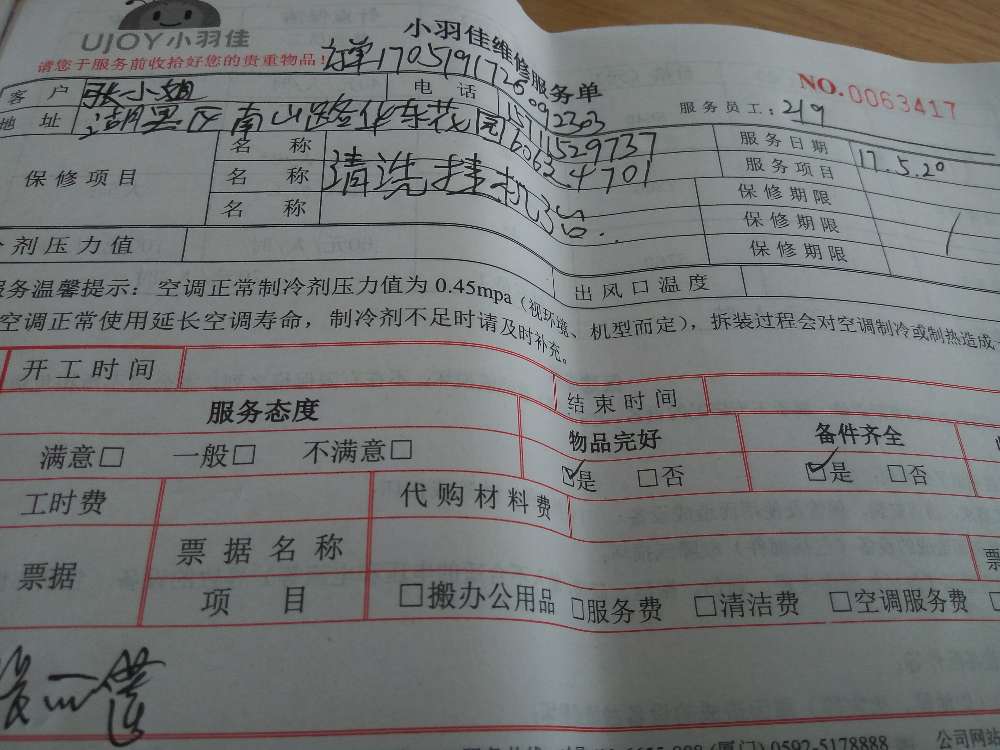 UJOY小羽佳
小羽佳维修服务单
请您于服务前收拾好您的贵重物品!
订单17051917260992303
NO.0063417
客户 张小姐 电话 15711529737 服务员工: 219
地址 湖里区南山路华东花园6063.4701 服务日期 17.5.20
保修项目 名称 清洗挂机3台. 服务项目
名称 保修期限
名称 保修期限
剂压力值 保修期限
出风口温度
服务温馨提示: 空调正常制冷剂压力值为 0.45mpa (视环境、机型而定), 拆装过程会对空调制冷或制热造成
空调正常使用延长空调寿命, 制冷剂不足时请及时补充。
开工时间 结束时间
服务态度 物品完好 备件齐全
满意□ 一般□ 不满意□ ☑是 □否 ☑是 □否
工时费 代购材料费
票据 票据名称 票
项目 □搬办公用品 □服务费 □清洁费 □空调服务费
(厦门) 0592-5178888 公司网站